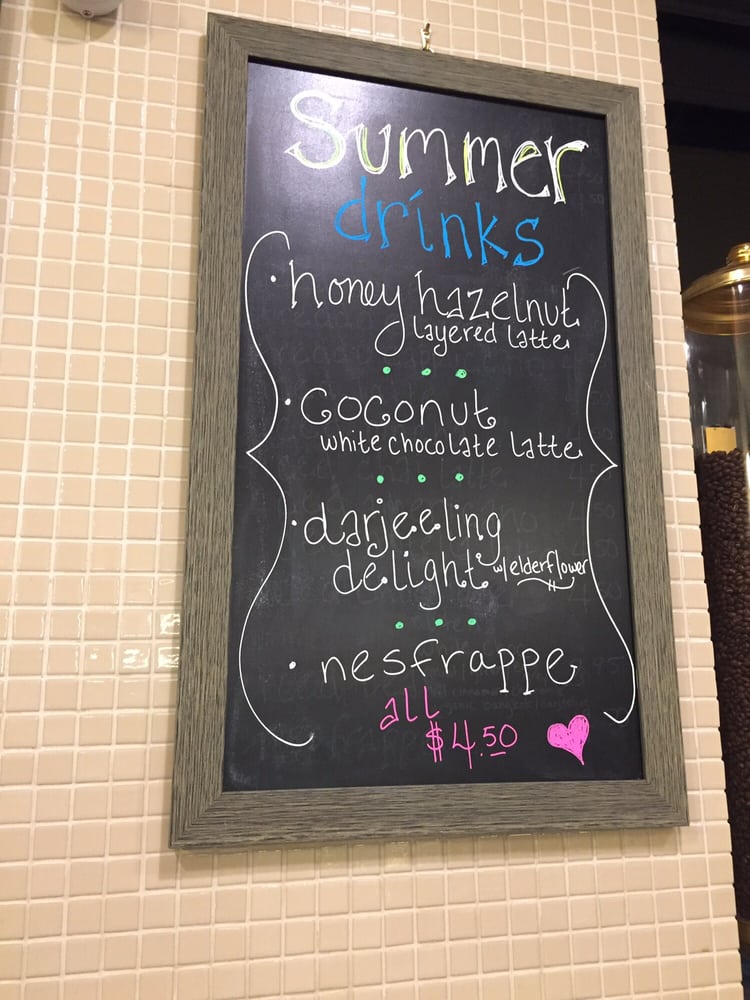 Summer
drinks
• honey hazelnut
layered latte
• coconut
white chocolate latte
• darjeeling
delight w/elderflower
• nesfrappe
all
$4.50